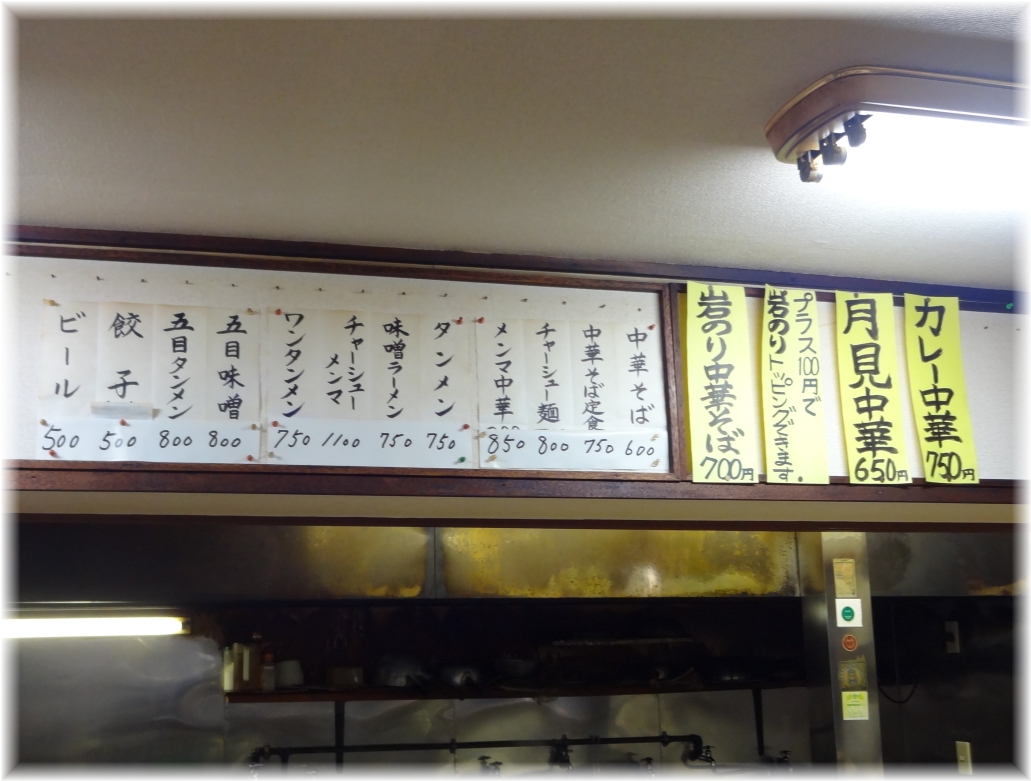 カレー中華
750円
月見中華
650円
プラス100円で
岩のりトッピングできます。
岩のり中華そば
700円
中華そば
600
中華そば定食
750
チャーシュー麺
800
メンマ中華
850
タンメン
750
味噌ラーメン
750
チャーシュー
メンマ
1100
ワンタンメン
750
五目味噌
800
五目タンメン
800
餃子
500
ビール
500